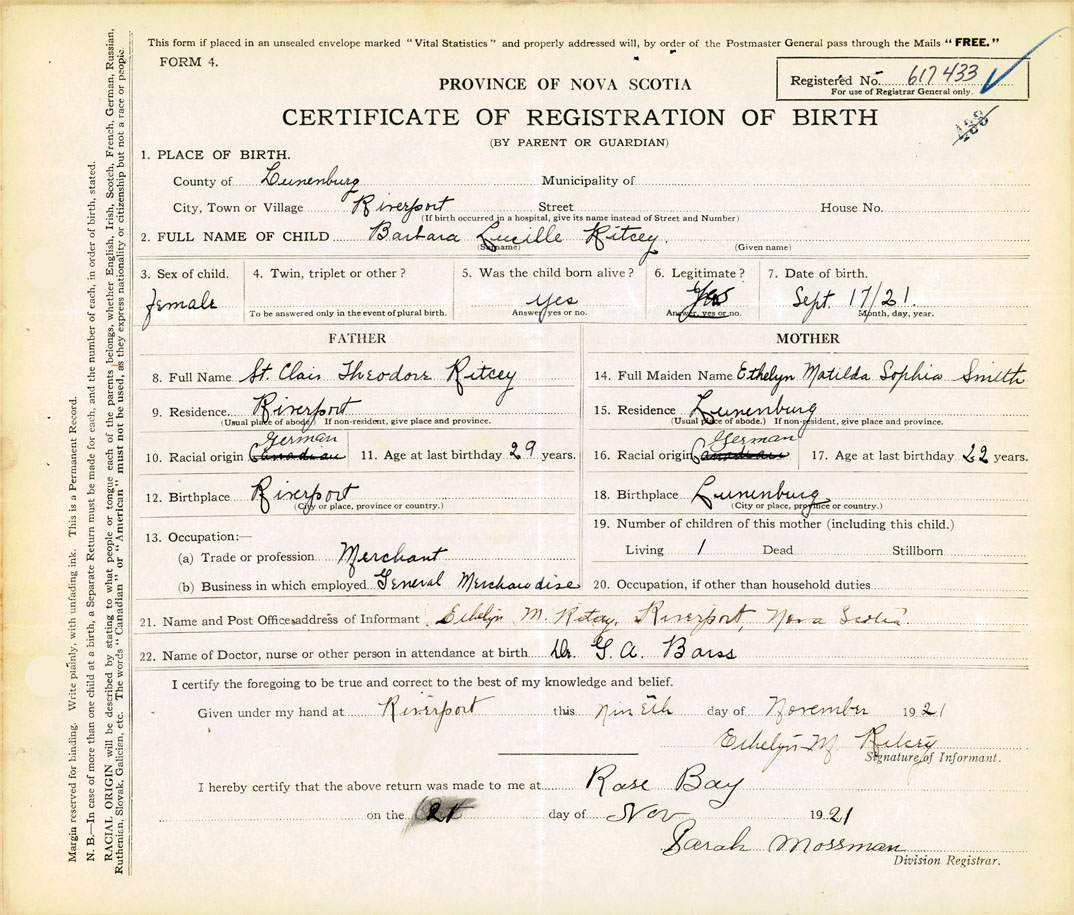 This form if placed in an unsealed envelope marked "Vital Statistics" and properly addressed will, by order of the Postmaster General pass through the Mails "FREE."
FORM 4.
Registered No. 617433
For use of Registrar General only.
PROVINCE OF NOVA SCOTIA
CERTIFICATE OF REGISTRATION OF BIRTH
(BY PARENT OR GUARDIAN)
1. PLACE OF BIRTH.
County of Lunenburg Municipality of
City, Town or Village Riverport Street House No.
(If birth occurred in a hospital, give its name instead of Street and Number)
2. FULL NAME OF CHILD Barbara Lucille Ritcey.
(Surname) (Given name)
3. Sex of child. 4. Twin, triplet or other? 5. Was the child born alive? 6. Legitimate? 7. Date of birth.
female yes Yes Sept. 17/21.
To be answered only in the event of plural birth. Answer yes or no. Answer, yes or no. Month, day, year.
FATHER MOTHER
8. Full Name St. Clair Theodore Ritcey 14. Full Maiden Name Ethelyn Matilda Sophia Smith
9. Residence Riverport 15. Residence Lunenburg
(Usual place of abode.) If non-resident, give place and province. (Usual place of abode.) If non-resident, give place and province.
German German
10. Racial origin Canadian 11. Age at last birthday 29 years. 16. Racial origin Canadian 17. Age at last birthday 22 years.
12. Birthplace Riverport 18. Birthplace Lunenburg
(City or place, province or country.) (City or place, province or country.)
19. Number of children of this mother (including this child.)
13. Occupation:—
(a) Trade or profession Merchant Living 1 Dead Stillborn
(b) Business in which employed General Merchandise 20. Occupation, if other than household duties
21. Name and Post Office address of Informant Ethelyn M. Ritcey, Riverport, Nova Scotia.
22. Name of Doctor, nurse or other person in attendance at birth Dr. G. A. Barss
I certify the foregoing to be true and correct to the best of my knowledge and belief.
Given under my hand at Riverport this nineth day of November 1921
Ethelyn M. Ritcey
Signature of Informant.
I hereby certify that the above return was made to me at Rose Bay
on the 21 day of Nov 1921
Sarah Mossman
Division Registrar.
Margin reserved for binding. Write plainly, with unfading ink. This is a Permanent Record.
N. B.—In case of more than one child at a birth, a Separate Return must be made for each, and the number of each, in order of birth, stated.
RACIAL ORIGIN will be described by stating to what people or tongue each of the parents belongs, whether English, Irish, Scotch, French, German, Russian,
Ruthenian, Slovak, Galician, etc. The words "Canadian" or "American" must not be used, as they express nationality or citizenship but not a race or people.